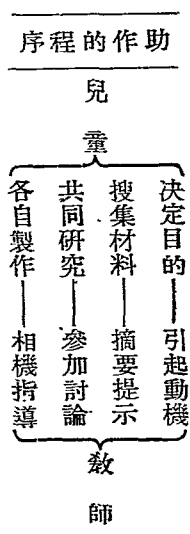 助作的程序
兒童
決定目的——引起動機
搜集材料——摘要提示
共同研究——參加討論
各自製作——相機指導
教師